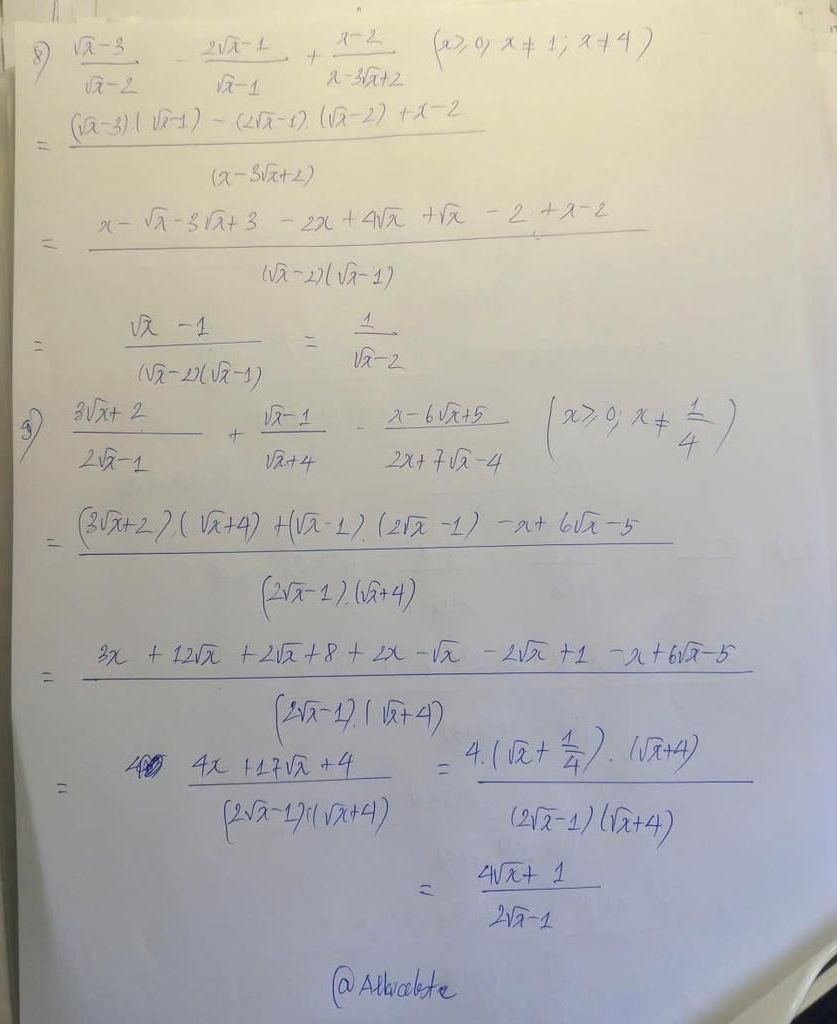 8) (√x-3)/(√x-2) - (2√x-1)/(√x-1) + (x-2)/(x-3√x+2) (x⩾0; x≠1; x≠4)
= ((√x-3).(√x-1) - (2√x-1).(√x-2) + x-2)/(x-3√x+2)
= (x-√x-3√x+3 - 2x + 4√x + √x - 2 + x-2)/((√x-2)(√x-1))
= (√x - 1)/((√x-2)(√x-1)) = 1/(√x-2)
9) (3√x+2)/(2√x-1) + (√x-1)/(√x+4) - (x-6√x+5)/(2x+7√x-4) (x⩾0; x≠1/4)
= ((3√x+2).(√x+4) + (√x-1).(2√x-1) - x + 6√x-5)/((2√x-1).(√x+4))
= (3x + 12√x + 2√x + 8 + 2x - √x - 2√x + 1 - x + 6√x-5)/((2√x-1).(√x+4))
= (4x + 17√x + 4)/((2√x-1).(√x+4)) = (4.(√x + 1/4).(√x+4))/((2√x-1)(√x+4))
= (4√x + 1)/(2√x-1)
@Albiceleste